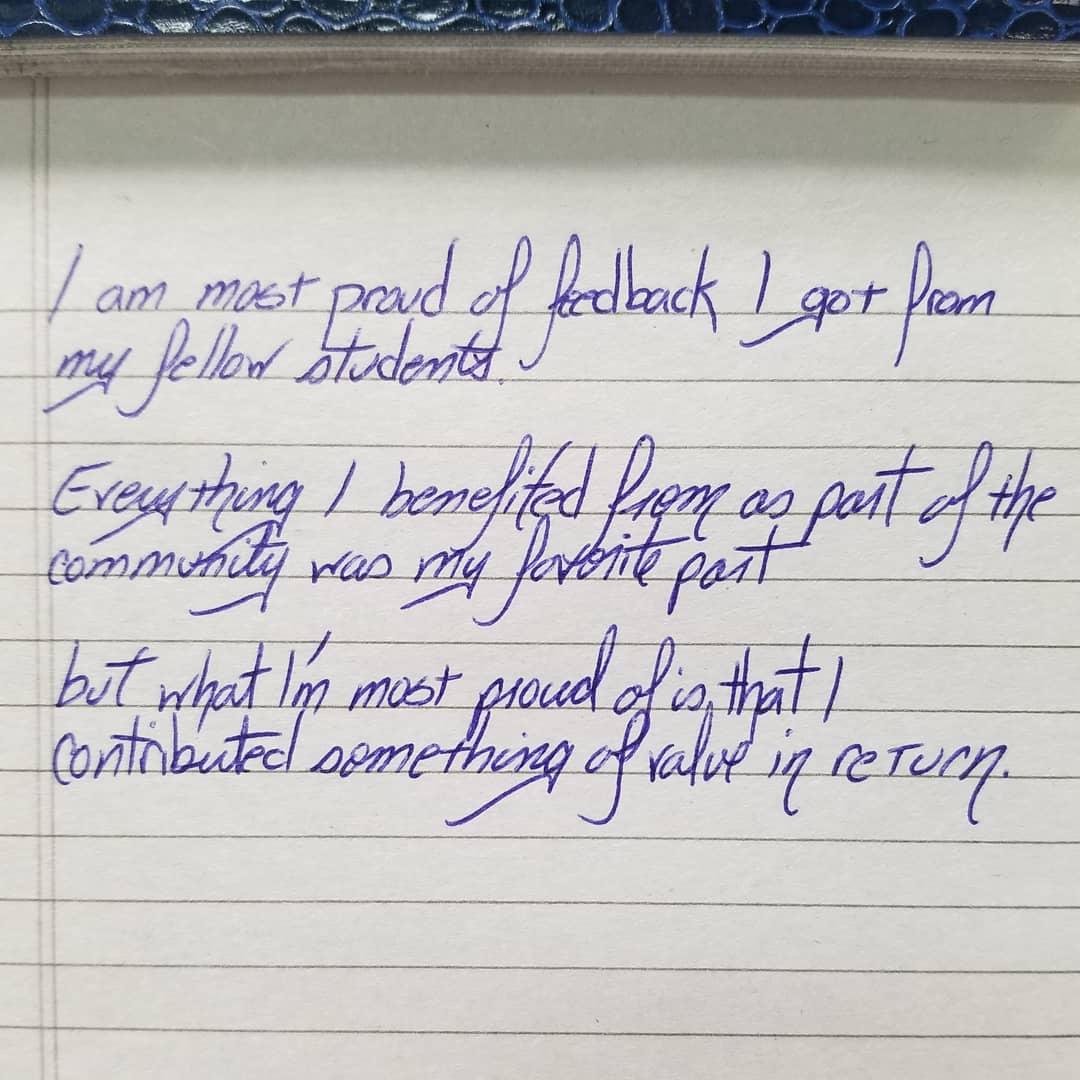 I am most proud of feedback I got from
my fellow students.
Everything I benefited from as part of the
community was my favorite part
but what I'm most proud of is, that I
contributed something of value in return.